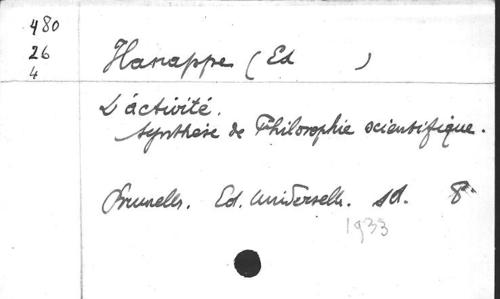 480
26
4
Hanappe (Ed )
L'activité.
Synthèse de Philosophie scientifique.
Bruxelles. Ed. Universelle. sd. 8°
1933